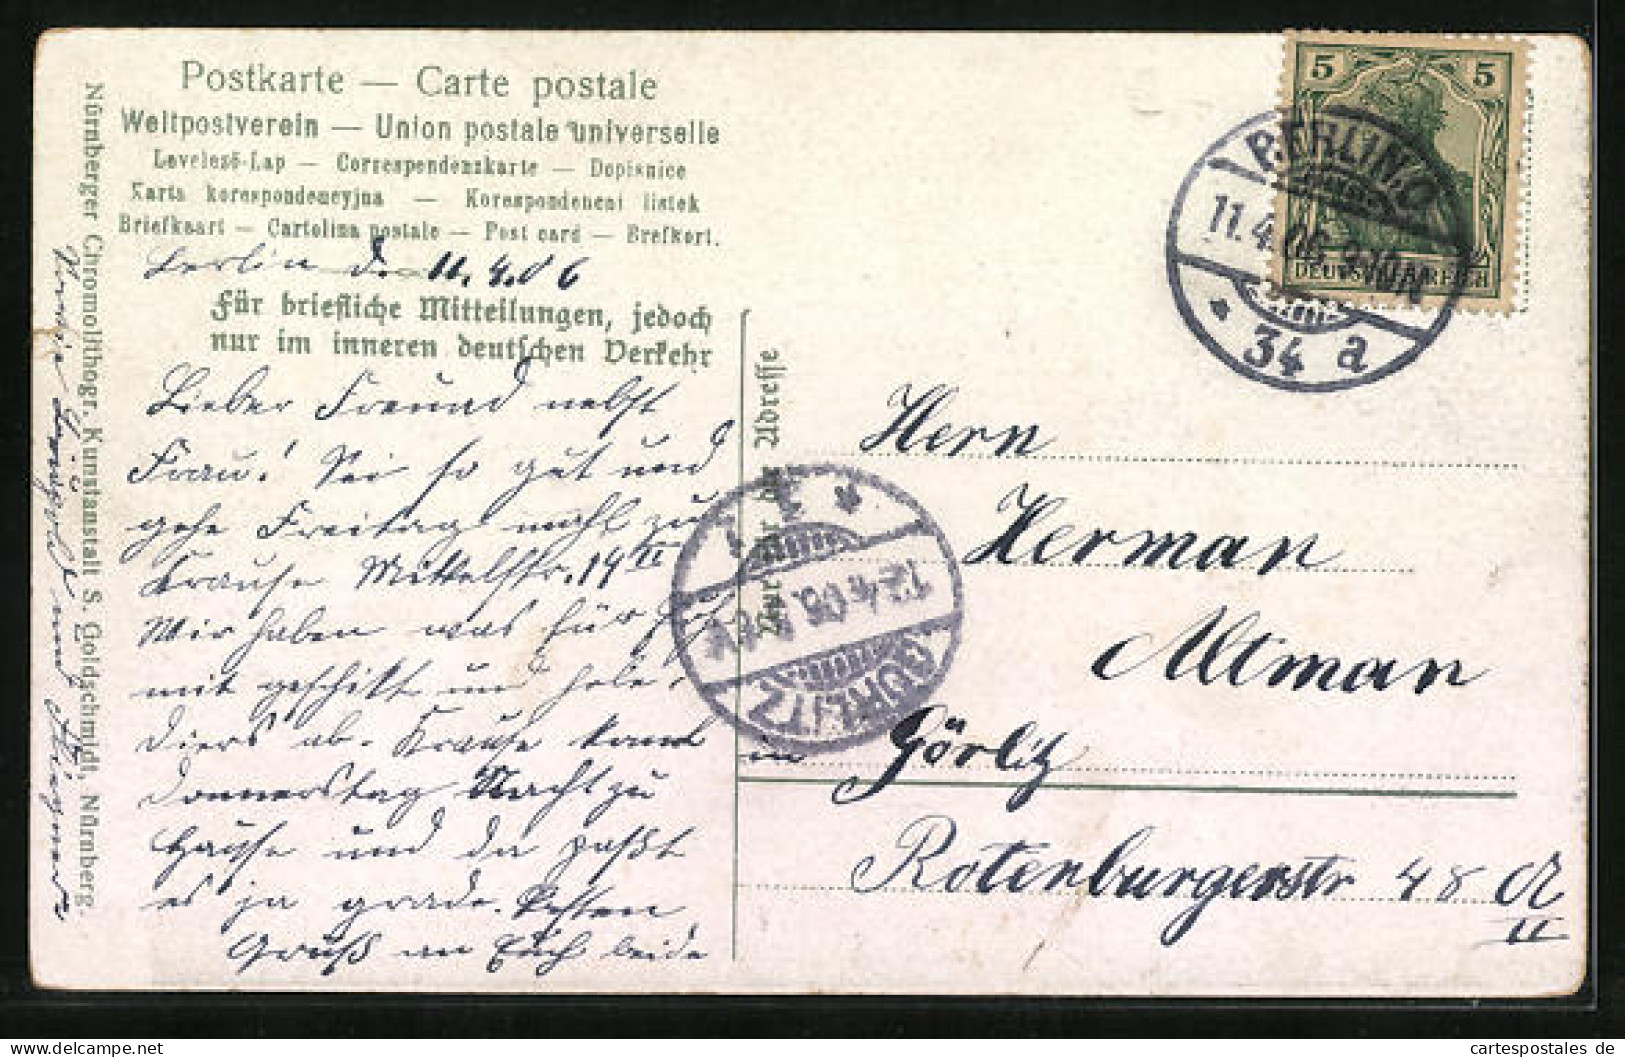 Postkarte — Carte postale
Weltpostverein — Union postale universelle
Levelezö-Lap — Correspendenzkarte — Dopisnice
Karta korespondencyjna — Korespondencni listek
Briefkaart — Cartolina postale — Post card — Brefkort.
Berlin d. 11.4.06
Für briefliche Mitteilungen, jedoch
nur im inneren deutschen Verkehr
Lieber Freund nebst
Frau! Sei so gut und
gehe Freitag mahl zu
Krause Mittelstr. 19 II
Wir haben was für
mit geschikt und hole
ab. Krause kommt
Donnerstag Nacht zu
Hause und da paßt
es ja grade. Besten
Gruß an Euch beide
Nürnberger Chromolithogr. Kunstanstalt S. Goldschmidt, Nürnberg.
Nur für die Adresse
5 5
DEUTSCHES REICH
BERLIN.O
11.4.06.9-10N
* 34 a
GÖRLITZ
12.4.06.
Herrn
Herman
Altman
in Görlitz
Rotenburgerstr 48
II